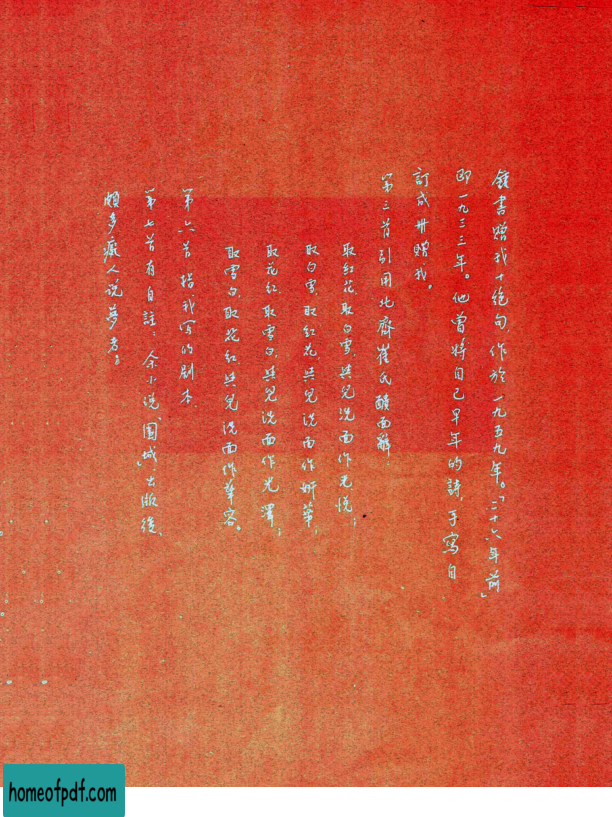 鍾書贈我十絶句,作於一九五九年。「二十六年前」
即一九三三年。他曾将自己早年的詩,手寫自
訂成册贈我。
第三首引用北齊崔氏靧面辭
取紅花,取白雪,與兒洗面作光悦;
取白雪,取紅花,與兒洗面作妍華,
取花紅,取雪白,與兒洗面作光澤;
取雪白,取花紅,與兒洗面作華容。
第六首指我写的劇本
第七首有自註:余小説「圍城」出版後、
頗多癡人説夢者。
homeofpdf.com